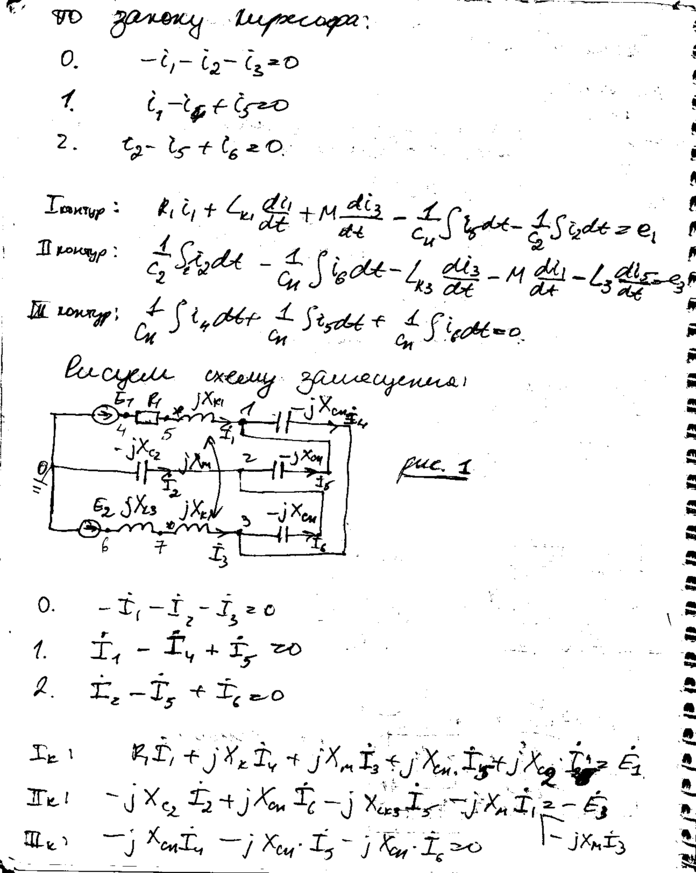 по закону Кирхгофа:
0. -i₁ - i₂ - i₃ = 0
1. i₁ - i₄ + i₅ = 0
2. i₂ - i₅ + i₆ = 0.
I контур: R₁i₁ + L_K1 di₁/dt + M di₃/dt - 1/Cн ∫i₅dt - 1/C₂ ∫i₂dt = e₁
II контур: 1/C₂ ∫i₂dt - 1/Cн ∫i₆dt - L_K3 di₃/dt - M di₁/dt - L₃ di₅/dt = e₃
III контур: 1/Cн ∫i₄dt + 1/Cн ∫i₅dt + 1/Cн ∫i₆dt = 0.
Рисуем схему замещения:
E₁ R₁ jX_K1 1 -jX_Cн İ₄
4 5 İ₁
0 -jX_C2 İ₂ jX_M 2 -jX_Cн İ₅
рис. 1
E₂ jX_L3 jX_K 3 -jX_Cн İ₆
6 7 İ₃
0. -İ₁ - İ₂ - İ₃ = 0
1. İ₁ - İ₄ + İ₅ = 0
2. İ₂ - İ₅ + İ₆ = 0
I к: R₁İ₁ + jX_K İ₄ + jX_M İ₃ + jX_Cн · İ₅ + jX_C2 · = Ė₁
II к: -jX_C2 İ₂ + jX_Cн İ₆ - jX İ₅ - jX_M İ₁ = -Ė₃
- jX_M İ₃
III к: -jX_Cн İ₄ - jX_Cн · İ₅ - jX_Cн · İ₆ = 0